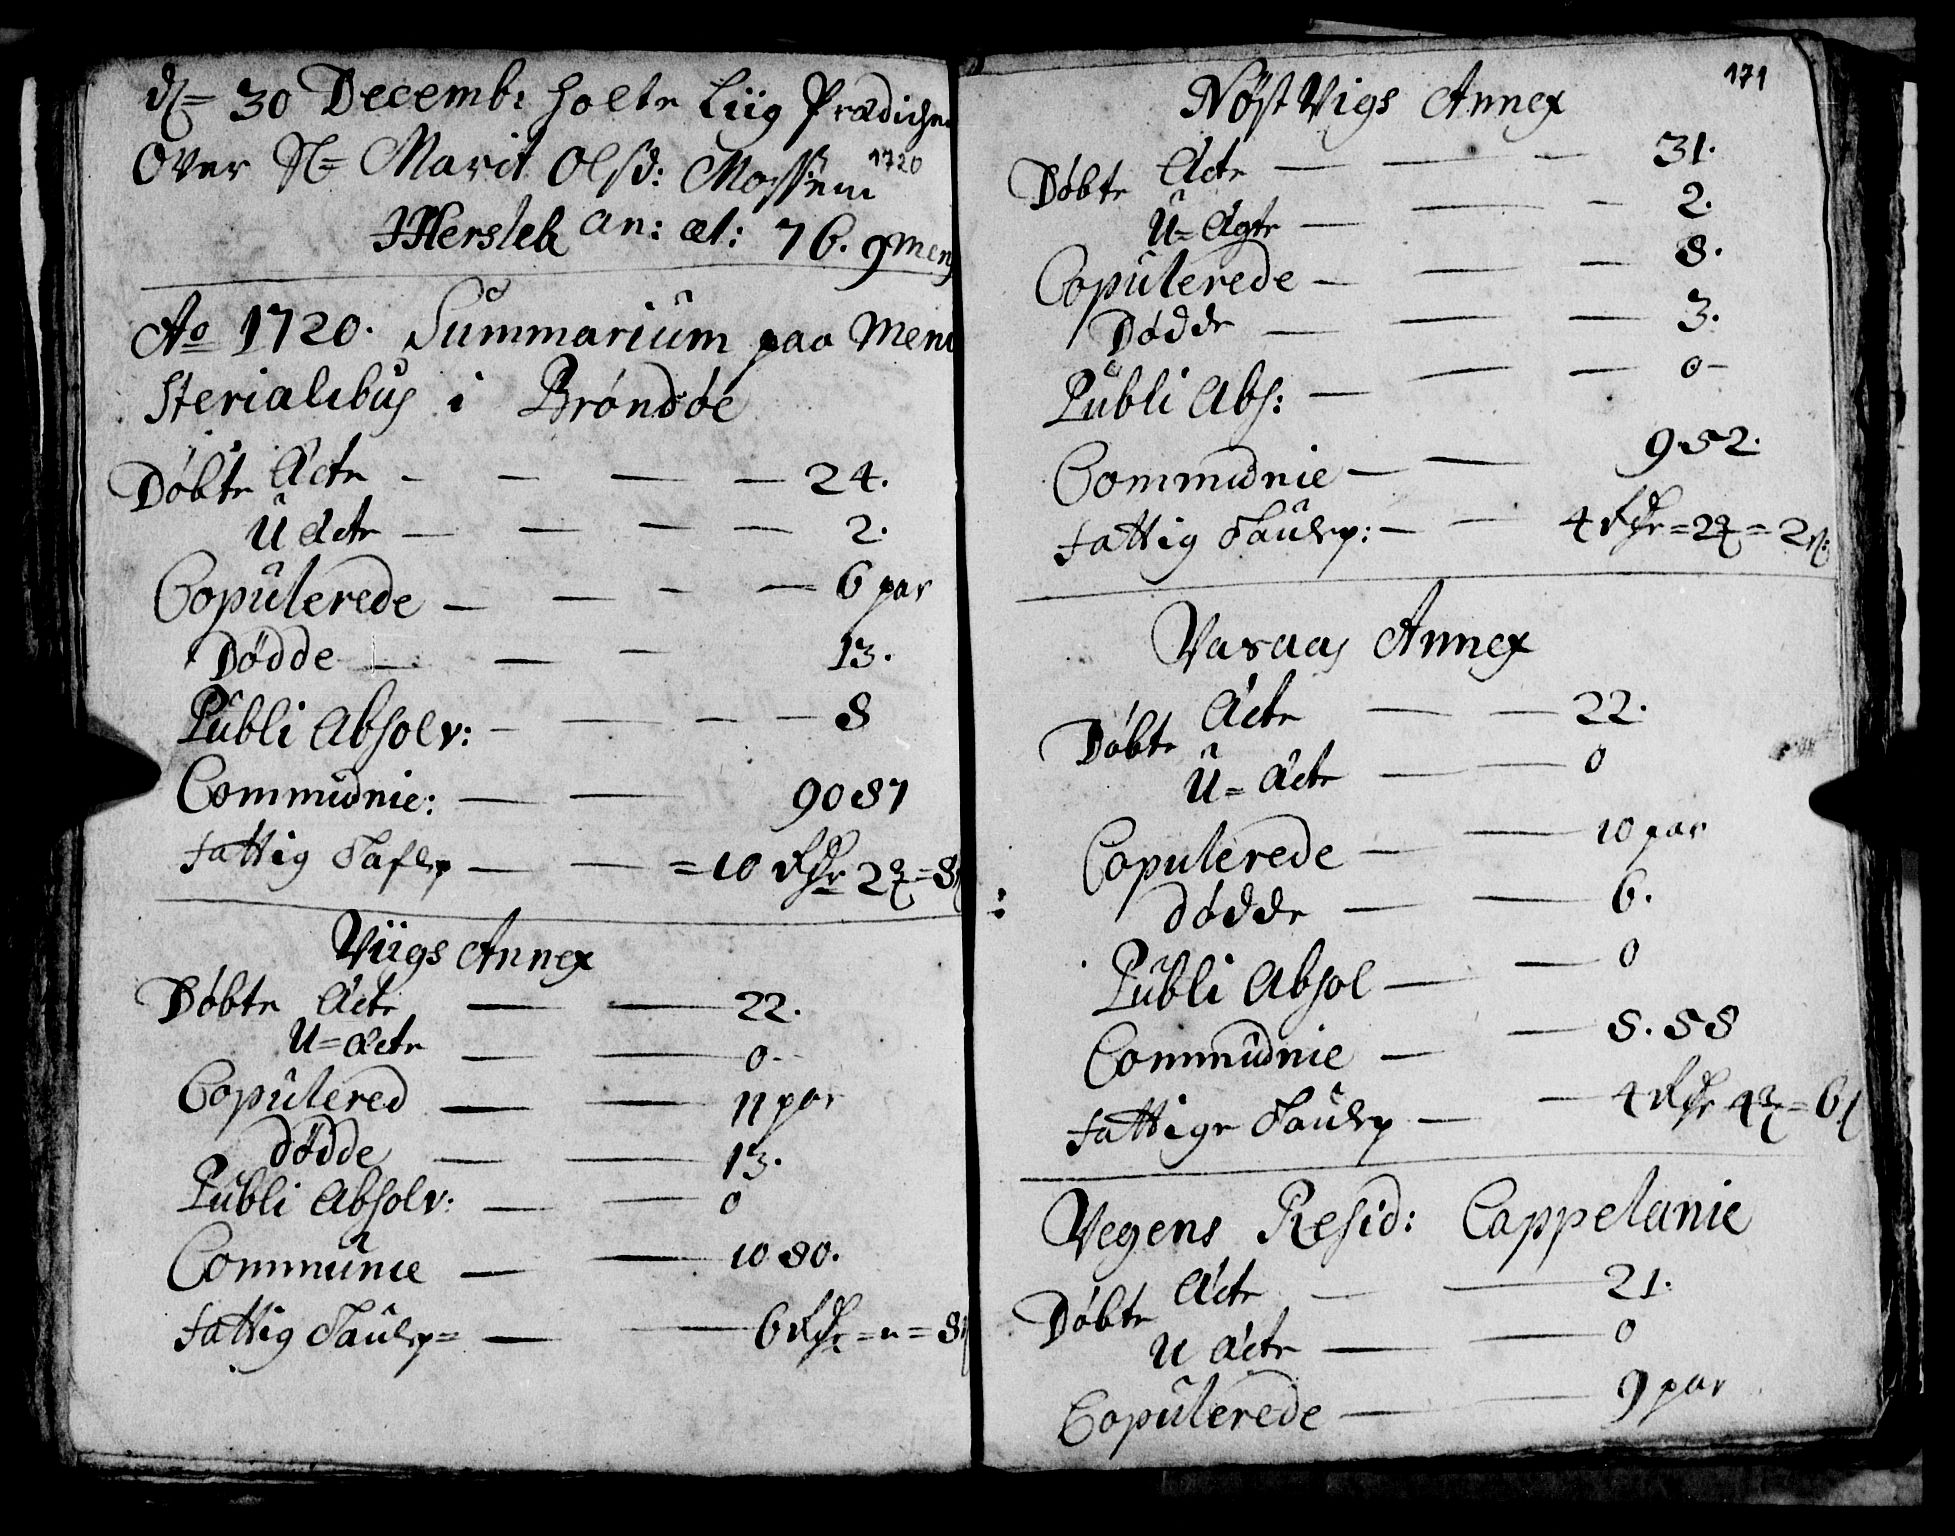 d 30 Decemb: holte Liig Prædichen
Over Sl= Marit Olsd: Mossem 1720
Hersleb an: æt: 76. 9 Men
Ao 1720. Summarium paa Meni
sterialibus i Brønøe
Døbte Ecte — — — — 24.
U Ecte — — — — 2.
Copulerede — — — — 6 par
Dødde — — — 13.
Publi Absolv: — — — — 8
Communie: — — 9087
fattig Tafle — — = 10 Rdr 2 = 8
Viigs Annex
Døbte Ecte — — 22.
U= Ecte — — 0-
Copulered — — 11 par
dødde — — 13.
Publi Absolv: — — 0
Communie — — 1080.
fattig Taule= — — 6 Rdr = " = 8
171
Nøst Vigs Annex
Døbte Ecte — — — 31.
U= Egte — — — 2.
Copulerede — — — 8.
Dødde — — — 3.
Publi Abs: — — — 0-
Communie — — 952.
fattig Taule: — — 4 Rdr = 2 = 2
Vasaas Annex
Døbte Ecte — — 22.
U= Ecte — — 0
Copulerede — — 10 par
dødde — — 6.
Publi Absol — — 0
Communie — — 8.58
fattige Taule — — 4 Rdr 4 = 6
Vegens Resid: Cappelanie
Døbte Ecte — — 21.
U Ecte — — 0
Copulerede — — 9 par